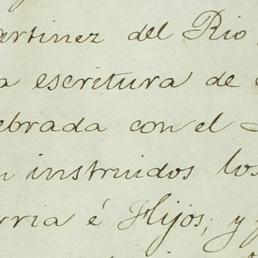 artinez del Rio
a escritura de
ebrada con el
n instruidos los
rria é Hijos, y